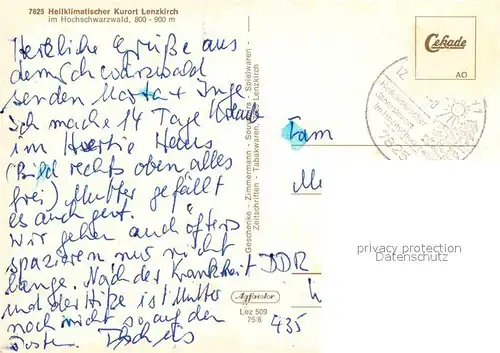 7825 Heilklimatischer Kurort Lenzkirch
im Hochschwarzwald, 800 - 900 m
Herzliche Grüße aus
dem Schwarzwald
senden Marta + Inge
Ich mache 14 Tage Urlaub
im Hertie Haus
(Bild rechts oben alles
frei) Mutter gefällt
es auch gut.
Wir gehen auch öfters
spazieren nur nicht
lange. Nach der Krankheit
und der Hitze ist Mutter
noch nicht so auf den
Posten.
Geschenke - Zimmermann - Souvenirs - Spielwaren -
Zeitschriften - Tabakwaren Lenzkirch
Cekade
AO
12
7825
Fam
M
DDR
privacy protection
Datenschutz
Loz 509
75/6
435